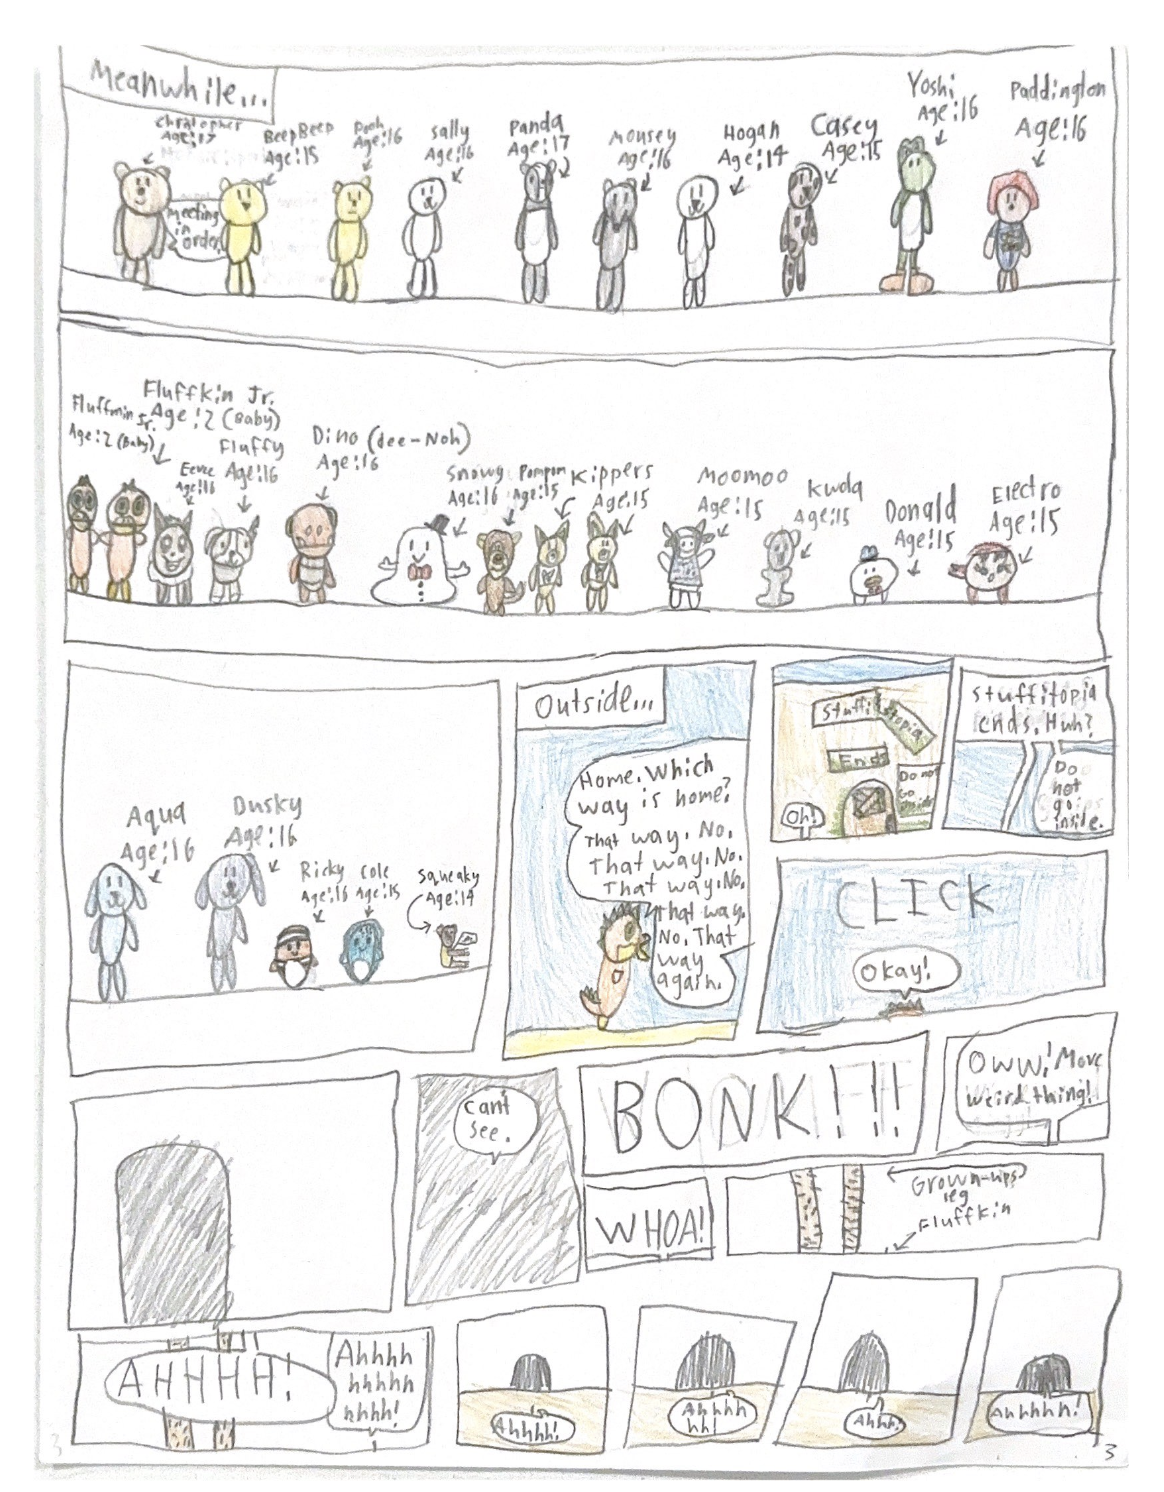 Meanwhile...
Christopher
Age:17
BeepBeep
Age:15
Pooh
Age:16
Sally
Age:16
Panda
Age:17
Mousey
Age:16
Hogan
Age:14
Casey
Age:15
Yoshi
Age:16
Paddington
Age:16
Meeting
in
order.
Fluffmin Jr.
Age:2 (Baby)
Fluffkin Jr.
Age:2 (Baby)
Eevee
Age:16
Fluffy
Age:16
Dino (dee-Noh)
Age:16
Snowy
Age:16
Pompom
Age:15
Kippers
Age:15
Moomoo
Age:15
Kwola
Age:15
Donald
Age:15
Electro
Age:15
Aqua
Age:16
Dusky
Age:16
Ricky
Age:16
Cole
Age:15
Squeaky
Age:14
Outside...
Home. Which
way is home?
That way. No.
That way. No.
That way. No.
That way.
No. That
way
again.
Stuffitopia
Ends
Do not
Go
Inside
Oh!
Stuffitopia
ends, Huh?
Do
not
go
inside.
CLICK
Okay!
Can't
see.
BONK!!!
Oww! Move
weird thing!
WHOA!
Grown-ups
leg
Fluffkin
AHHHH!
Ahhhh
hhhhh
hhhh!
Ahhhh!
Ahhhh
hh!
Ahhh!
Ahhhhh!
3
3